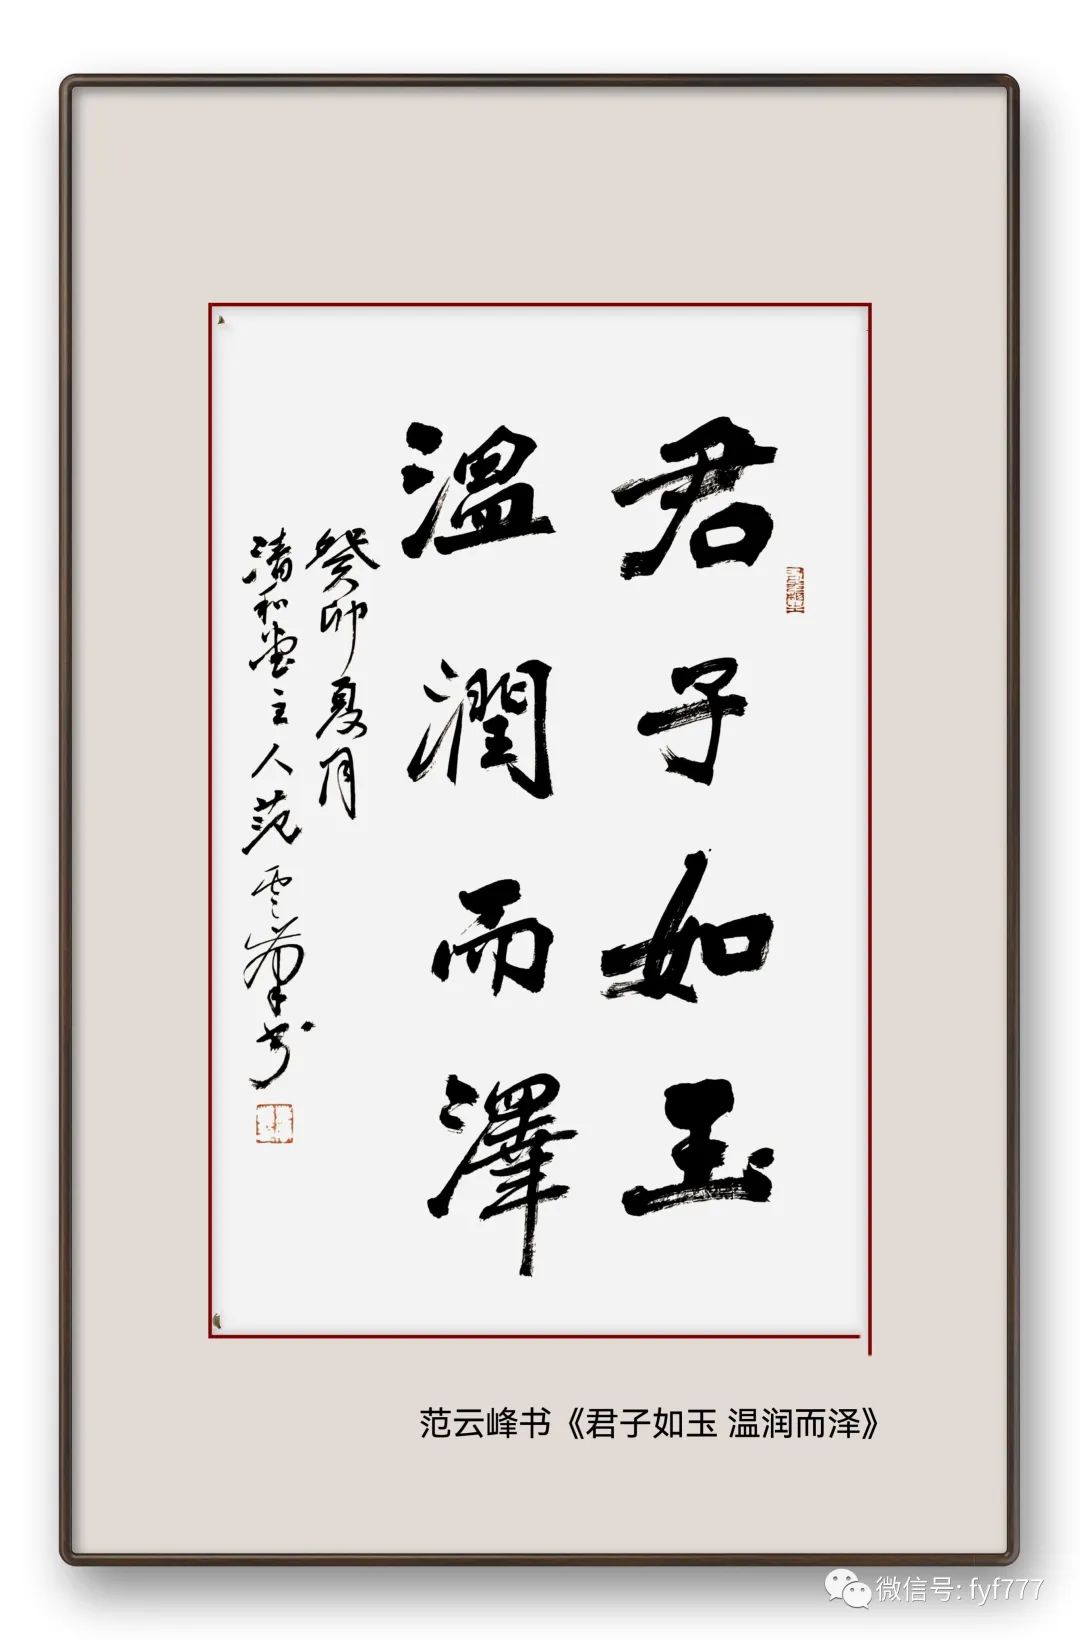 君子如玉
溫潤而澤
癸卯夏月
清和堂主人范云峯书
范云峰书《君子如玉 温润而泽》
微信号: fyf777